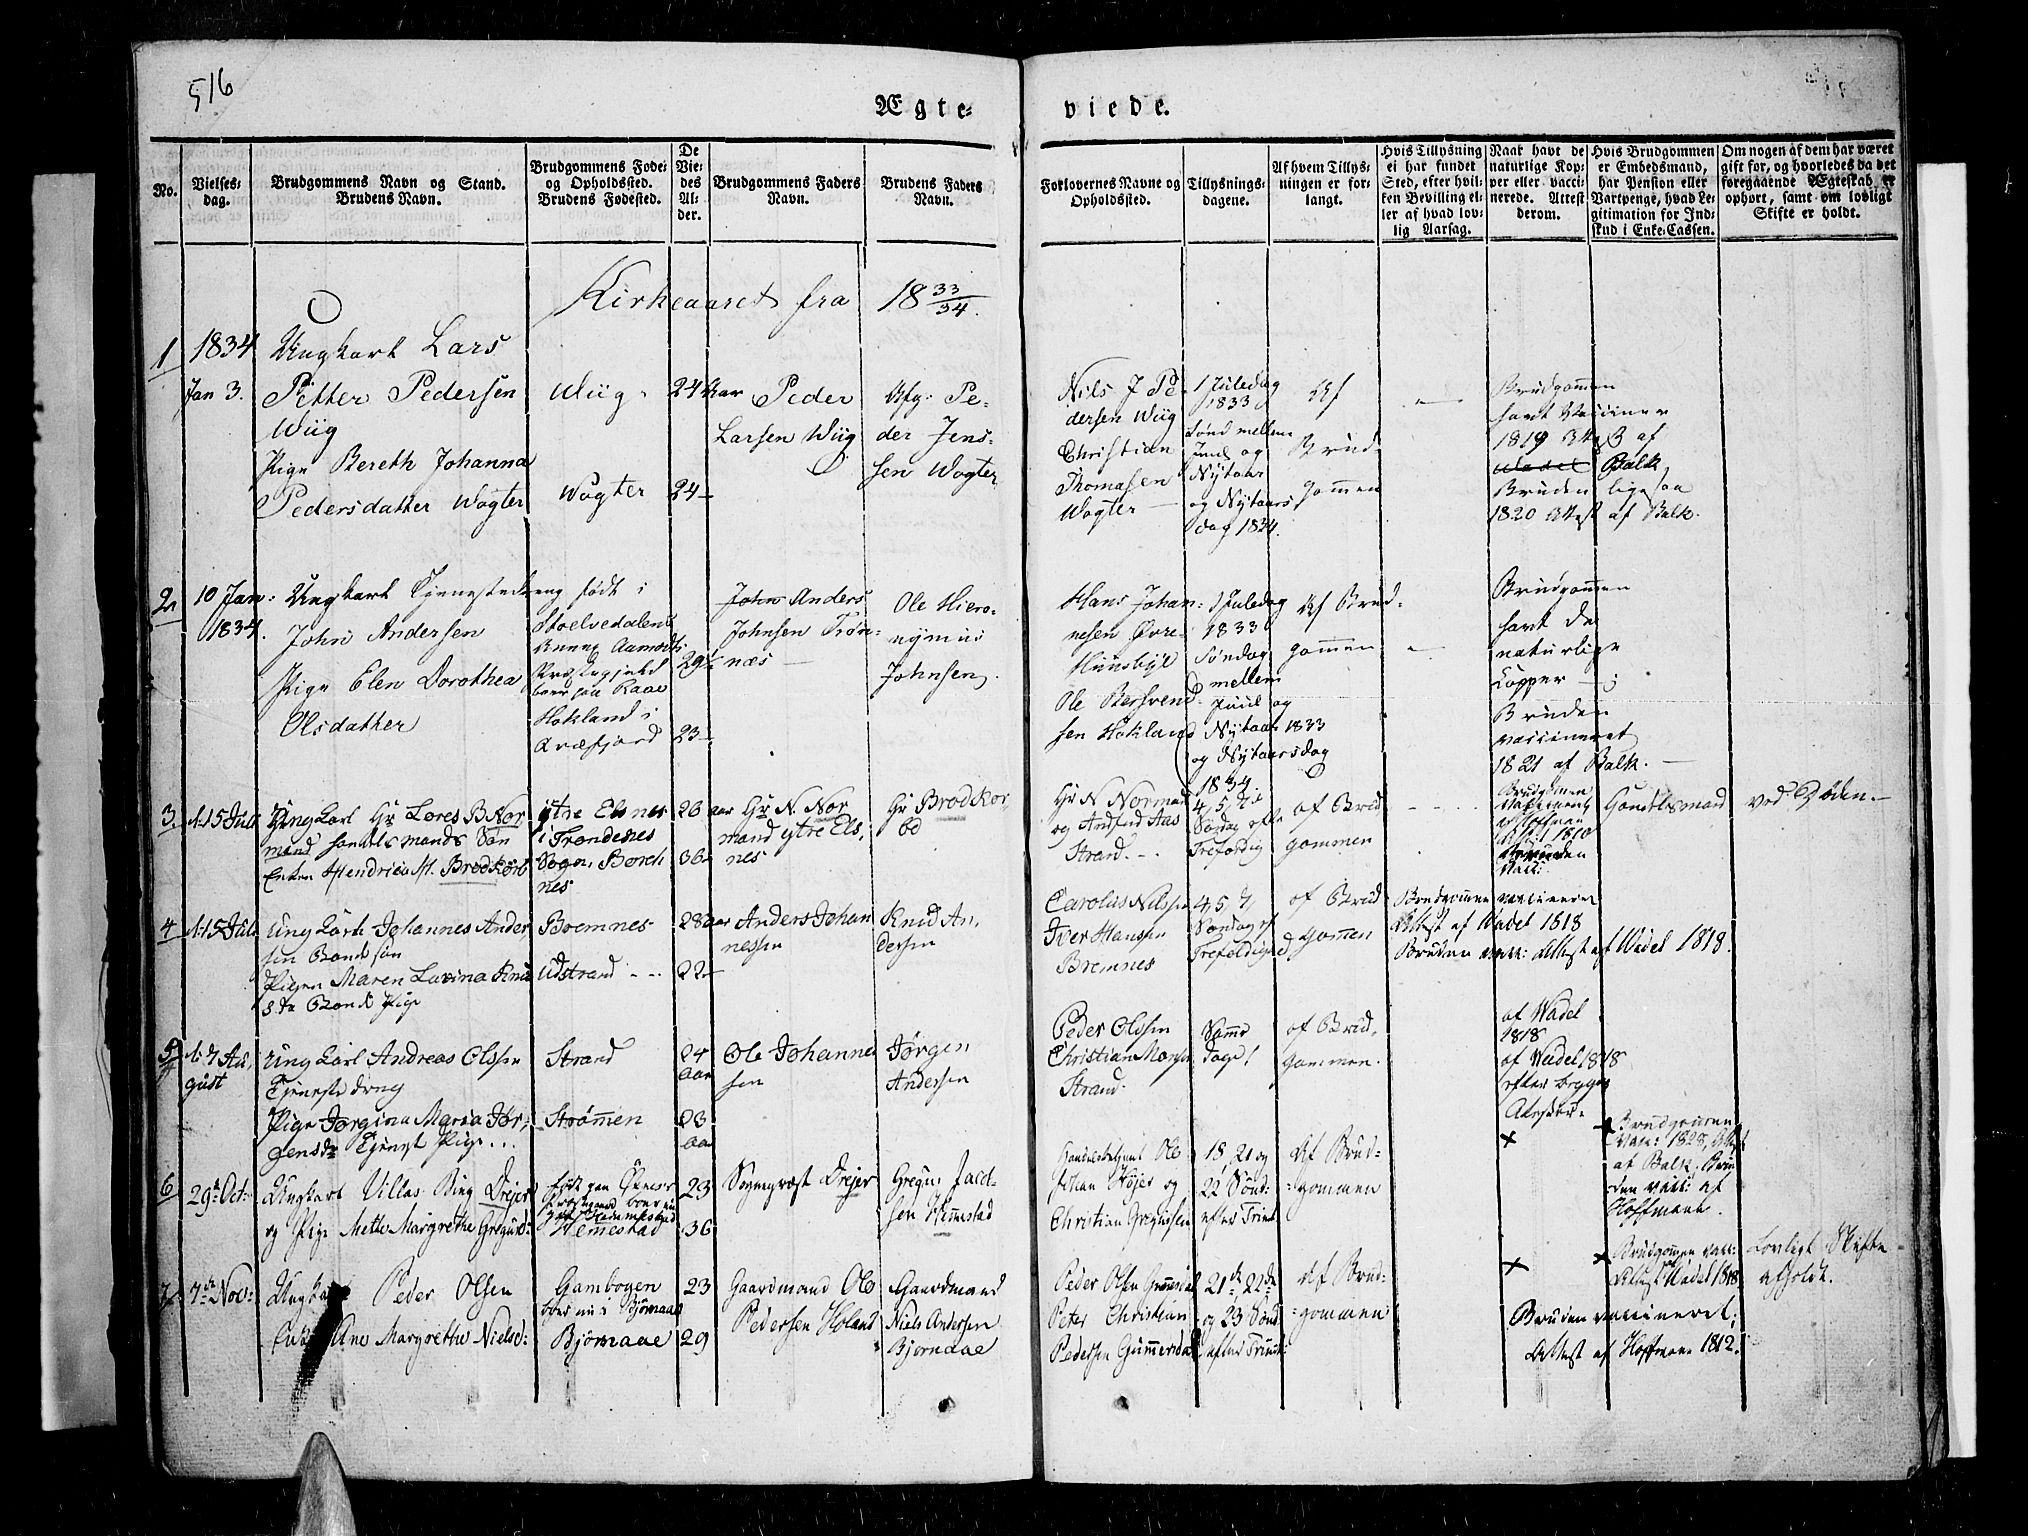 516
Ægte-
viede.
No.
Vielses-
dag.
Brudgommens Navn og Stand.
Brudens Navn.
Brudgommens Føde-
og Opholdssted.
Brudens Fødested.
De
Vie-
des
Al-
der.
Brudgommens Faders
Navn.
Brudens Faders
Navn.
Forlovernes Navne og
Opholdssted.
Tillysnings-
dagene.
Af hvem Tillys-
ningen er for-
langt.
Hvis Tillysning
ei har fundet
Sted, efter hvil-
ken Bevilling el-
ler af hvad lov-
lig Aarsag.
Naar havt de
naturlige Kop-
per eller vacci-
nerede. Attest
derom.
Hvis Brudgommen
er Embedsmand,
har Pension eller
Vartpenge, hvad Le-
gitimation for Ind-
skud i Enke-Cassen.
Om nogen af dem har været
gift før, og hvorledes da det
foregaaende Ægteskab er
ophørt, samt om lovligt
Skifte er holdt.
Kirkeaaret fra 18 33/34.
1
1834
Jan 3.
Ungkarl Lars
Petter Pedersen
Wiig
Pige Bereth Johanna
Pedersdatter Wagter
Wiig
Wagter
24 Aar
24
Peder
Larsen Wiig
Afg: Pe-
der Jens-
sen Wagter
Nils J Pe-
dersen Wiig
Christian
Thomasen
Wagter
1 Juledag
1833
Sønd mellem
Juul og
Nytaar
og Nytaars
dag 1834.
Af
Brud-
gommen
Brudgommen
havt Vacciner
1819 Attest af
Wadel Balk,
Bruden ligesaa
1820 Attest af Balk.
2
10 Jan:
1834.
Ungkarl Tjenestedreng
John Andersen
Pige Elen Dorothea
Olsdatter
født i
Annex Aamodts
Præstegjeld
Hokland i
Qvæfjord
29½
23
John Anders
Johnsen Trøn-
næs
Ole Hiero-
nymus
Johnsen
Hans Johan-
nesen Øvre-
Hunsbye
Ole Bersvend-
sen Hokland
1 Juledag
1833
Søndag
mellem
Juul og
Nytaar 1833
og Nytaarsdag
1834
Af Brud-
gommen
Brudgommen
havt de
naturlige
Kopper
Bruden
vaccineret
1821 af Balk.
3
d: 15 Juli
Ung Karl Hr Lores B Nor
mand handelsmands Søn
Enken Hendrica M. Brodkorb
ytre Elsnes
i Trondenes
Sogn, Borch
nes
26 aar
36
Hr N. Nor
mand ytre Els,
nes
Hr Brodkor,
Hr N Normand
og
Strand.
4, 5, 7,
Søndag efter
Trefoldig
af Brud
gommen
Brudgommen
af Hoffman
1810
Bruden
Vacc:
Handelsmand
ved Døden.
4
d: 15 Juli
Ung Karl Johannes Ander,
sen Bonde søn
Pigen Maren Lavina Knu
sda Bonde Pige
Bremnes
Udstrand
28 aar
22
Anders Johan
nessen
Knud An,
dersen
Carolus Nilssen
Iver Hansen
Bremnes
4, 5, 7,
Søndag ef
Trefoldighed
af Brud
gomen
Brudgommen vaccineret
Attest af Wadel 1818
Bruden vacc: Attest af Wadel 1818.
5
d: 7 Au,
gust
Ung Karl Andreas Olssen
Tjeneste dreng
Pige Jørgina Maria Jør,
gensda Tjenest Pige
Strand
Strømen
24
aar
23
aar
Ole Johannes
sen
Jørgen
Andersen
Peder Olssen
Christian
Strand.
Same
dage
af Brud,
gommen.
af Wadel
1818
af Wadel 1818
6
29de Oct:
Ungkarl Villas Bing Drejer
og Pige Mette Margrethe Gregusd:
Hemestad
23
36
Sognepræst Drejer
Gregus Jacob-
sen Hemestad
Handelsbetjent Ole
Johan Højer og
Christian Gregussen
18, 21 og
22 Sønd:
efter Trinit
Af Brud-
gommen
Brudgommen
vacc: 1828, Attest
af Balk. Bru
den vacc: af
Hoffmann.
7
7de Nov:
Ungkarl Peder Olsen
Enke Ane Margrethe Nielsd:
Gambogen
Bjørnaae
23
29
Gaardmand Ole
Pedersen Holand
Gaardmand
Niels Andersen
Bjørndae
Peder Olsen
Peter Christian
Pedersen Gummersdal
21de, 22de
og 23 Sønd
efter Trinit:
Af Brud-
gommen
Brudgommen vacc:
Attest Wadel 1818.
Bruden vaccineret;
Attest af Hoffman 1812.
Lovligt Skifte
afholdt.